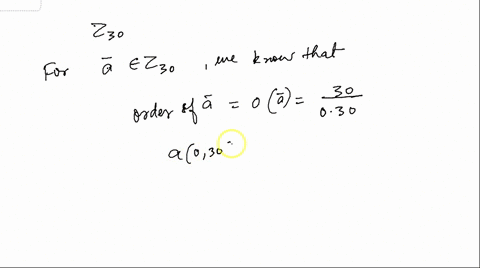 Z₃₀
For ā ∈ Z₃₀ , we know that
order of ā = O(ā) = 30 / 0.30
a(0,30